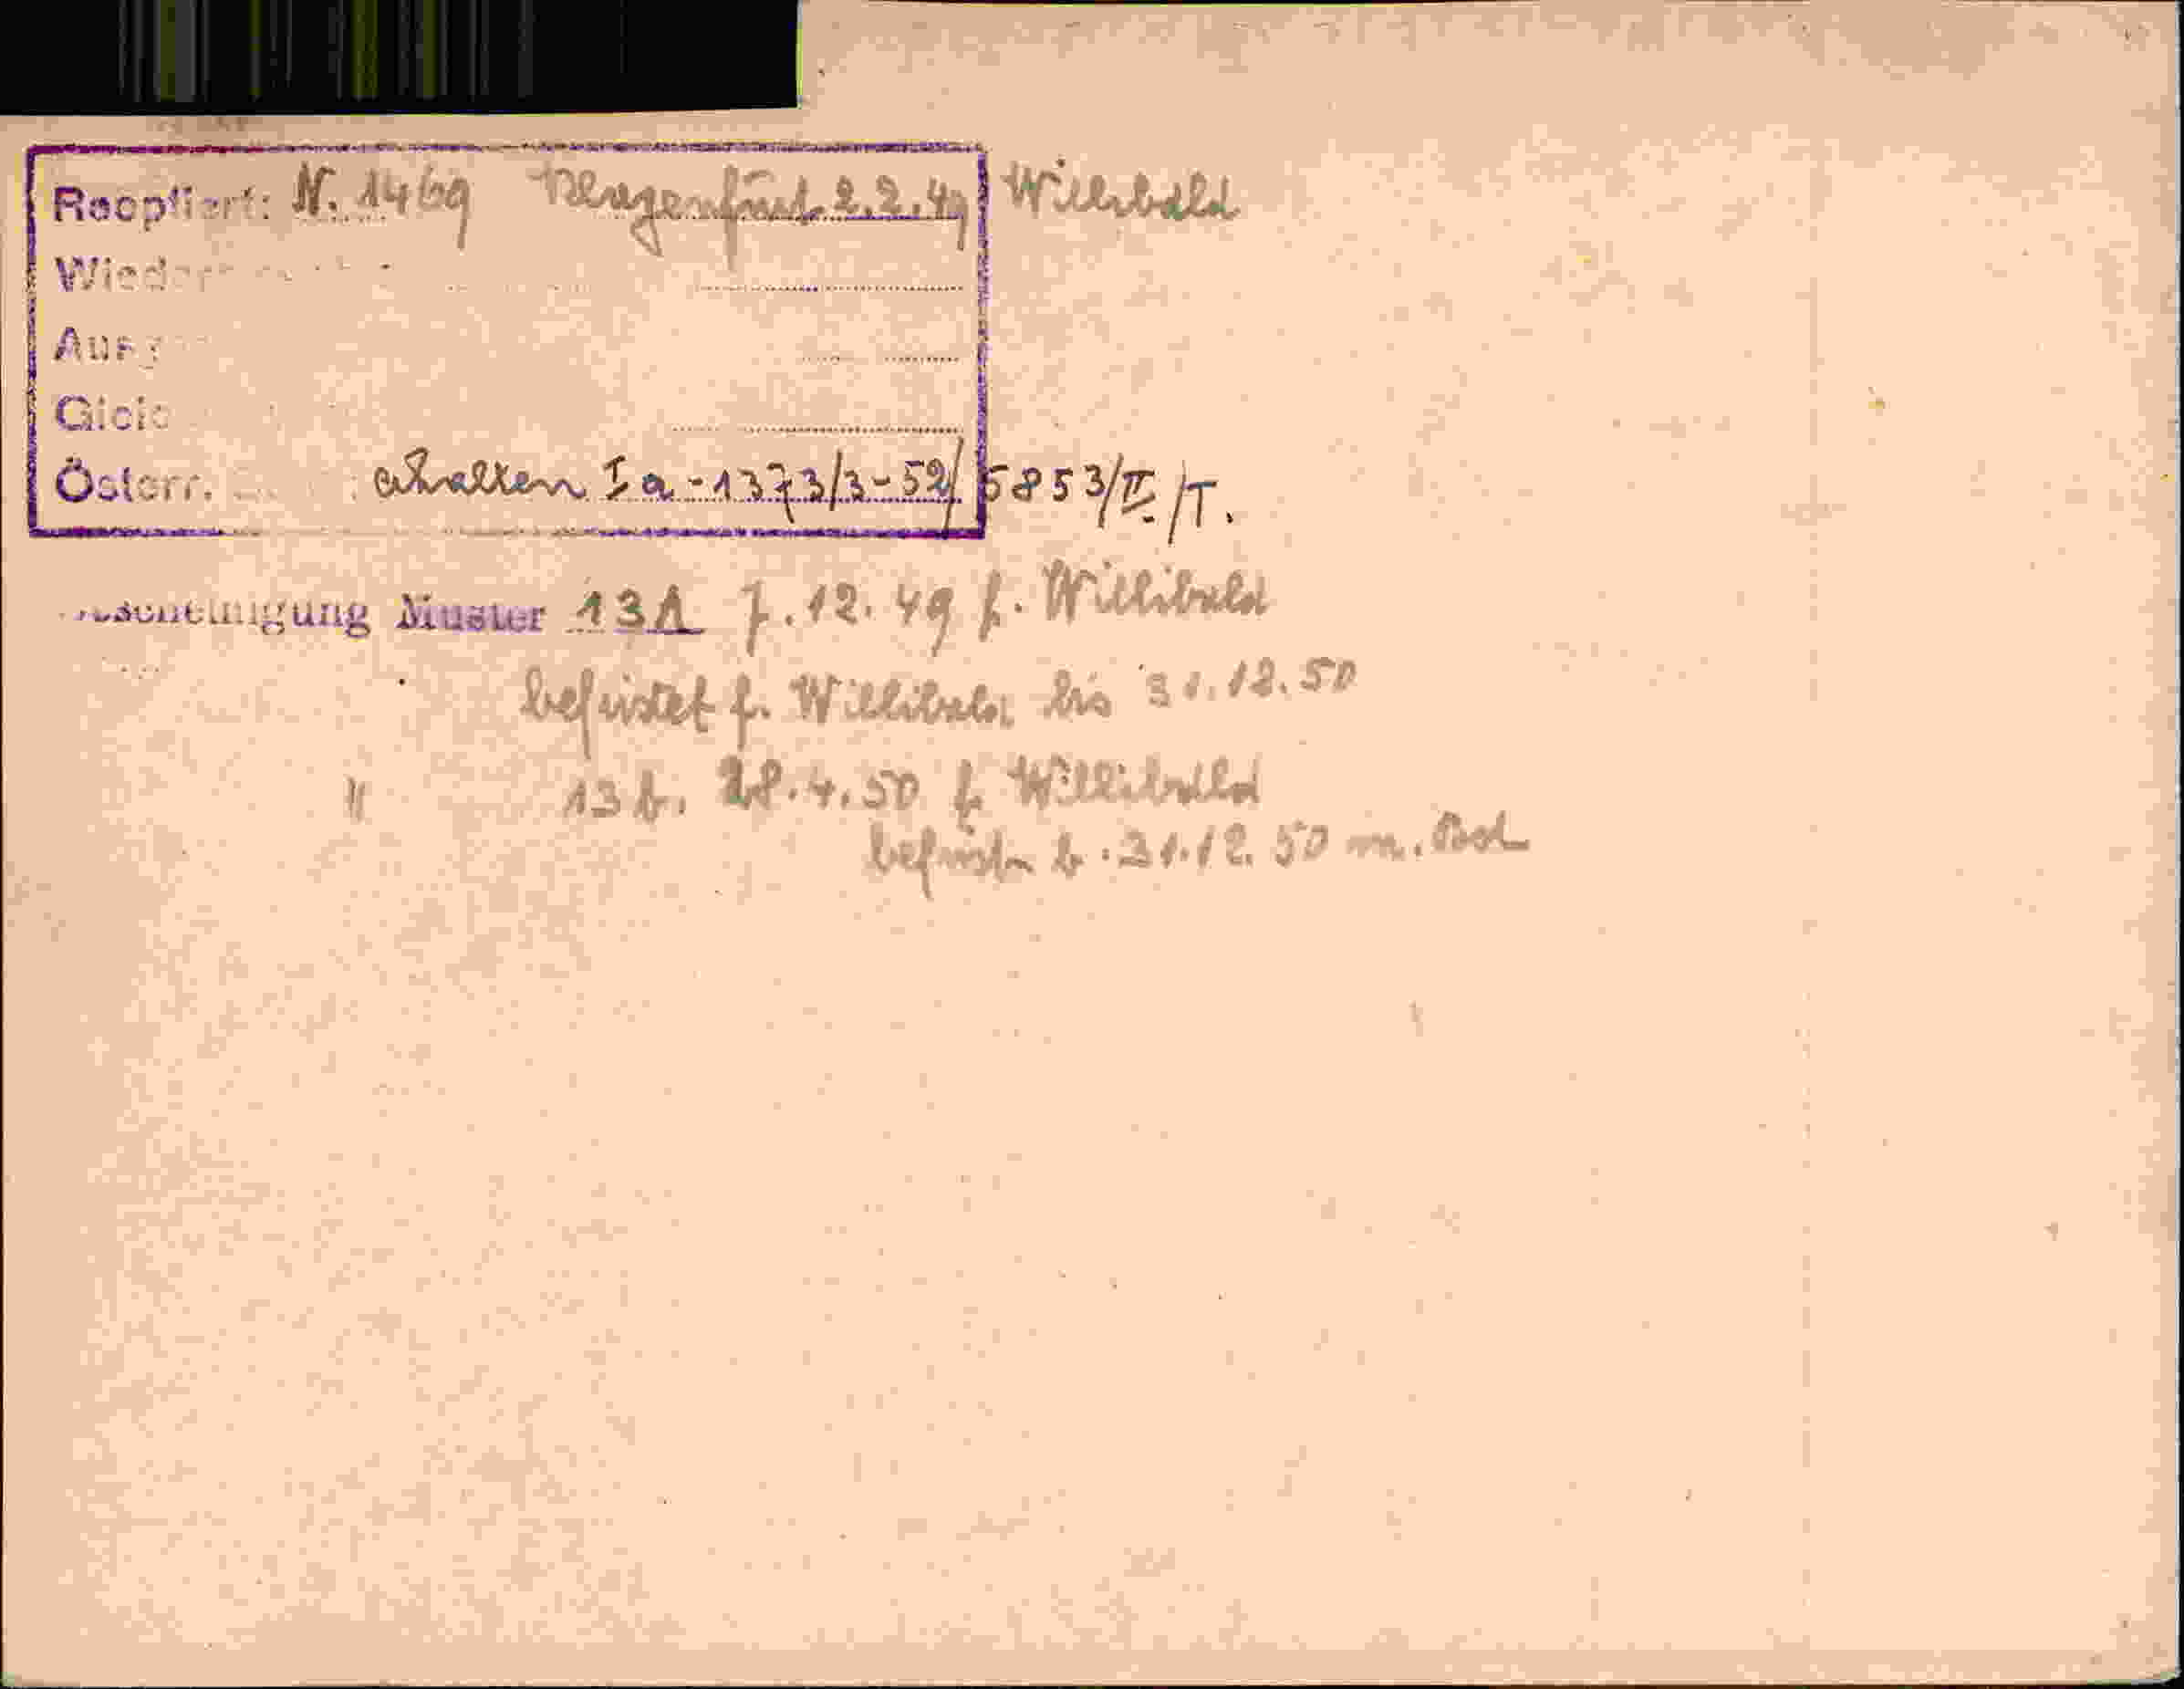 Reoptiert: N. 1469 Klagenfurt 2.2.49 Willibald
Österr. erhalten Ia-1373/3-52/5853/II/T.
Muster 13A 7.12.49 f. Willibald
befristet f. Willibald bis 31.12.50
" 13b. 28.4.50 f. Willibald
befrist. b. 31.12.50 m.